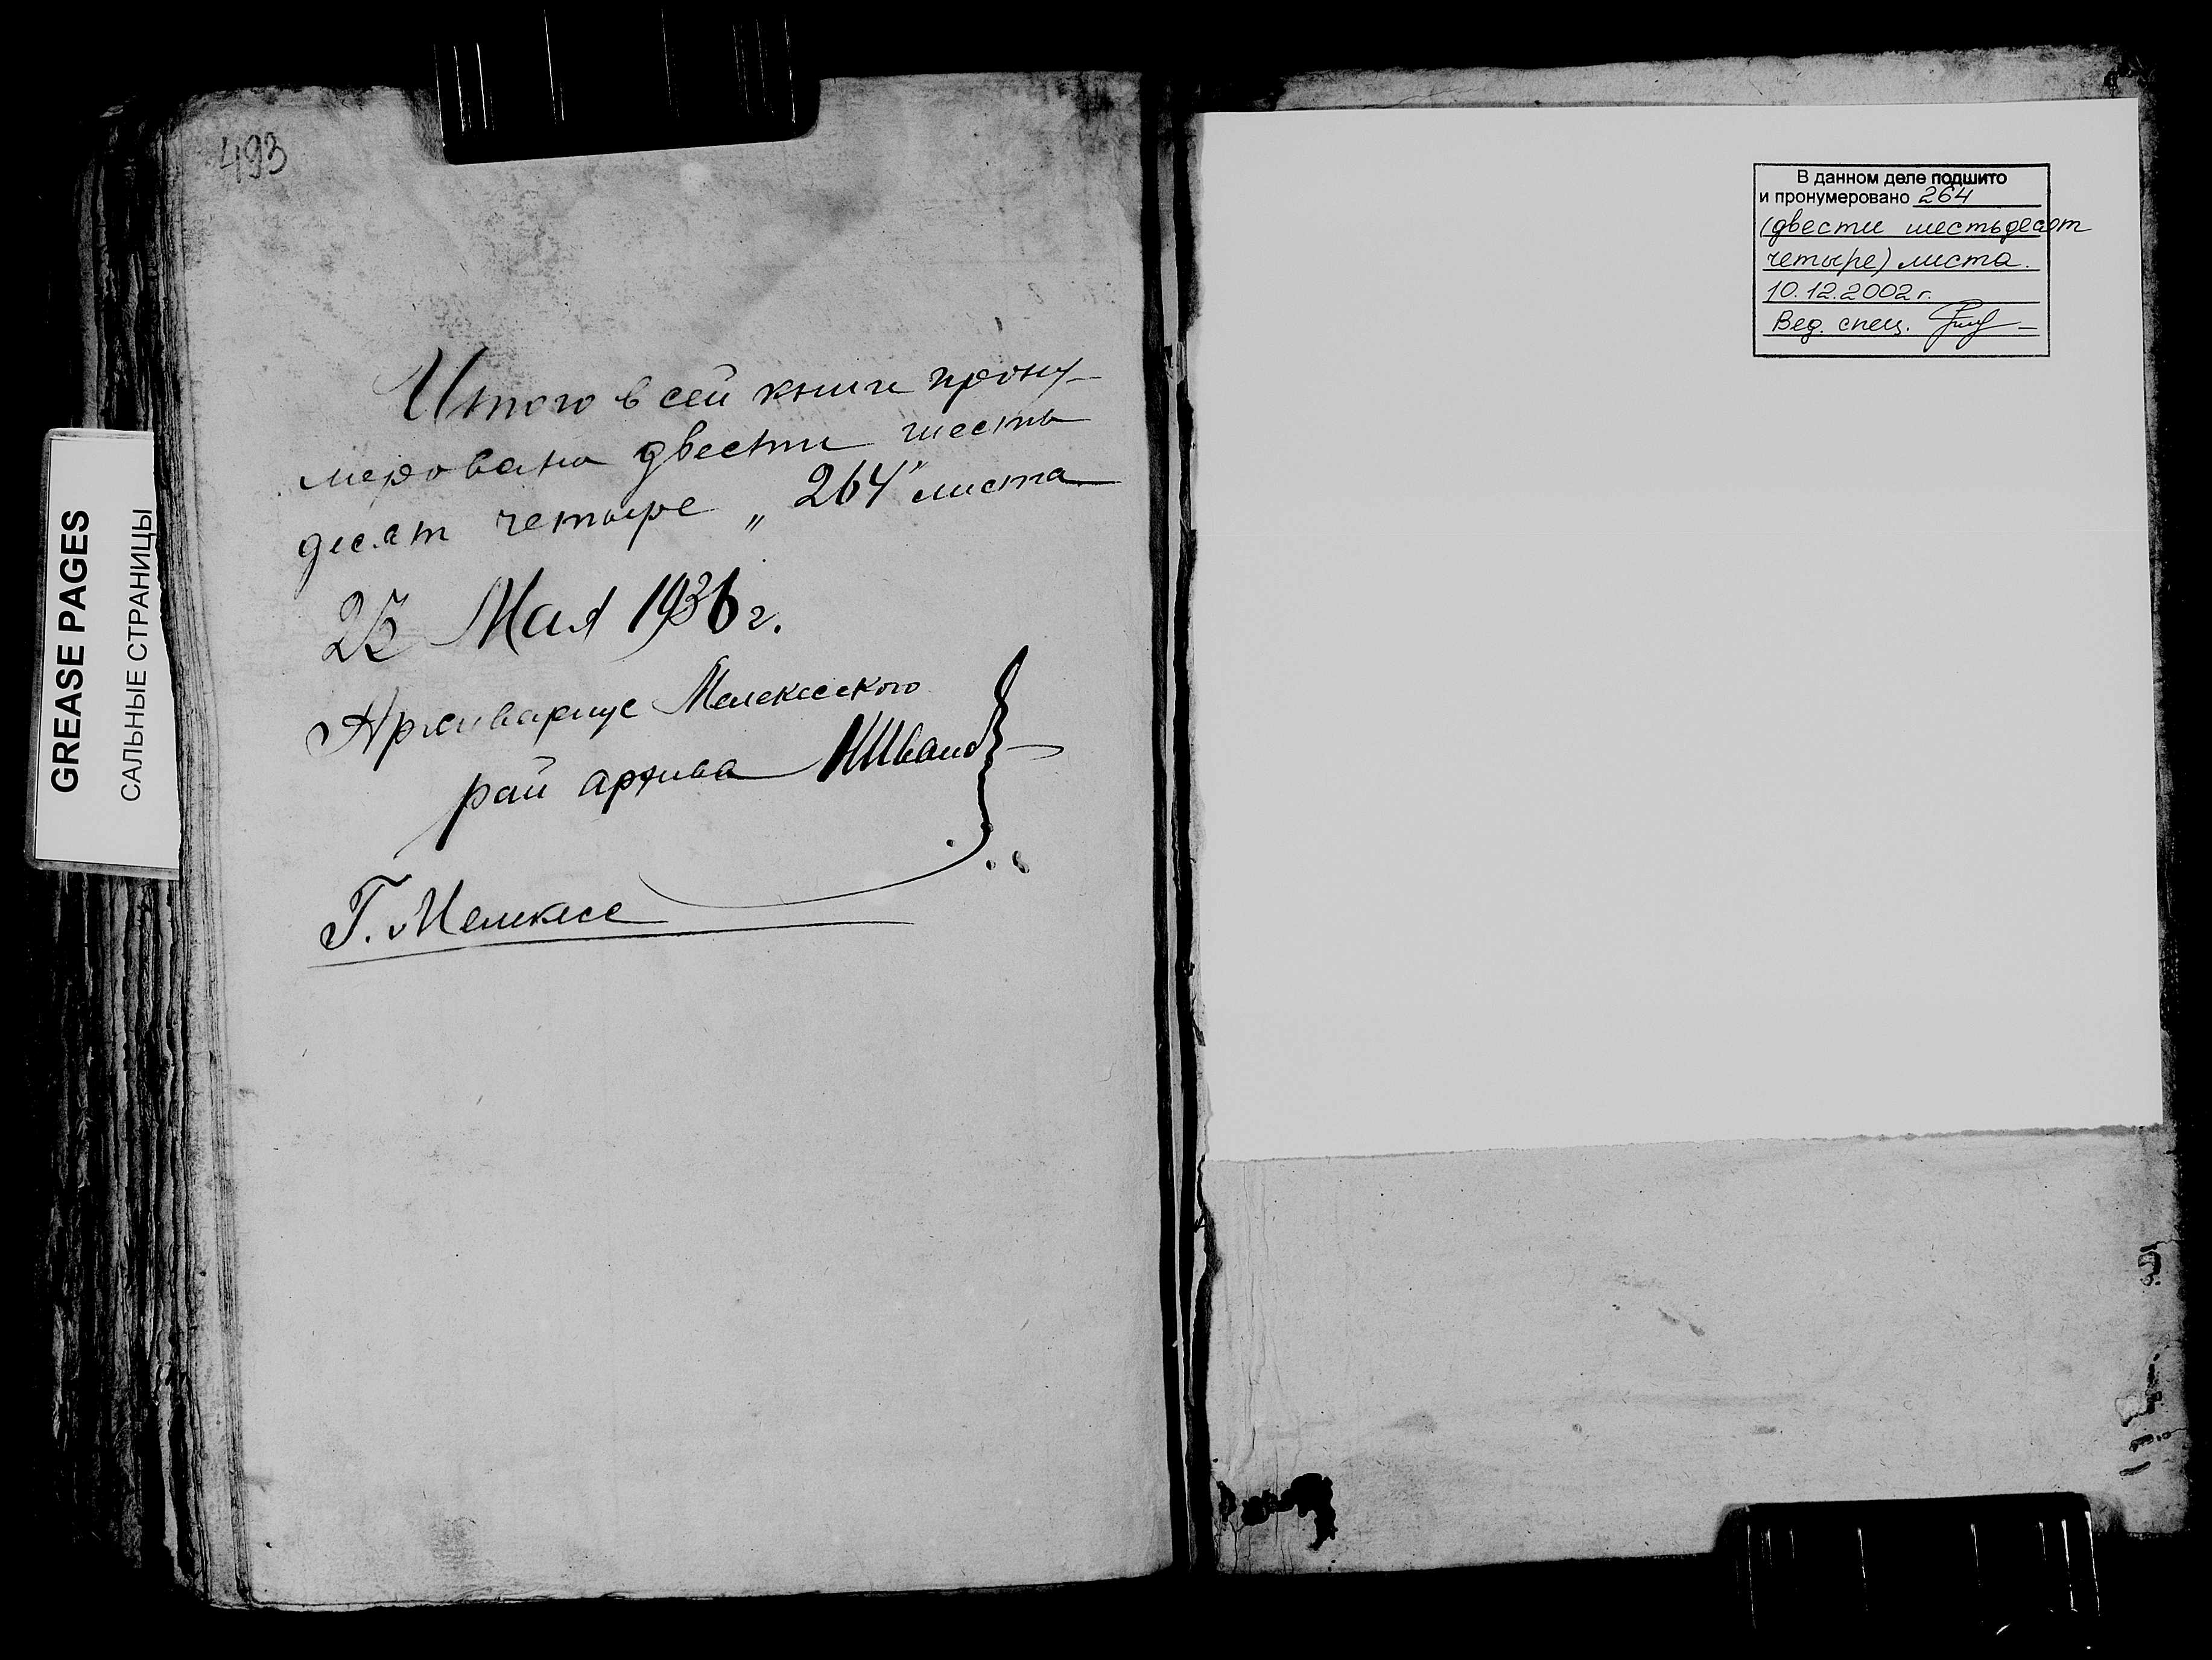 493
Итого в сей книги прону-
меровано двести шесть
десят четыре „264" листа
Мая 1936 г.
Архивариус Мелекесского
рай архива НИванов
Г. Мелекесс
GREASE PAGES
САЛЬНЫЕ СТРАНИЦЫ
В данном деле подшито
и пронумеровано 264
(двести шестьдесят
четыре) листа.
10.12.2002 г.
Вед. спец.